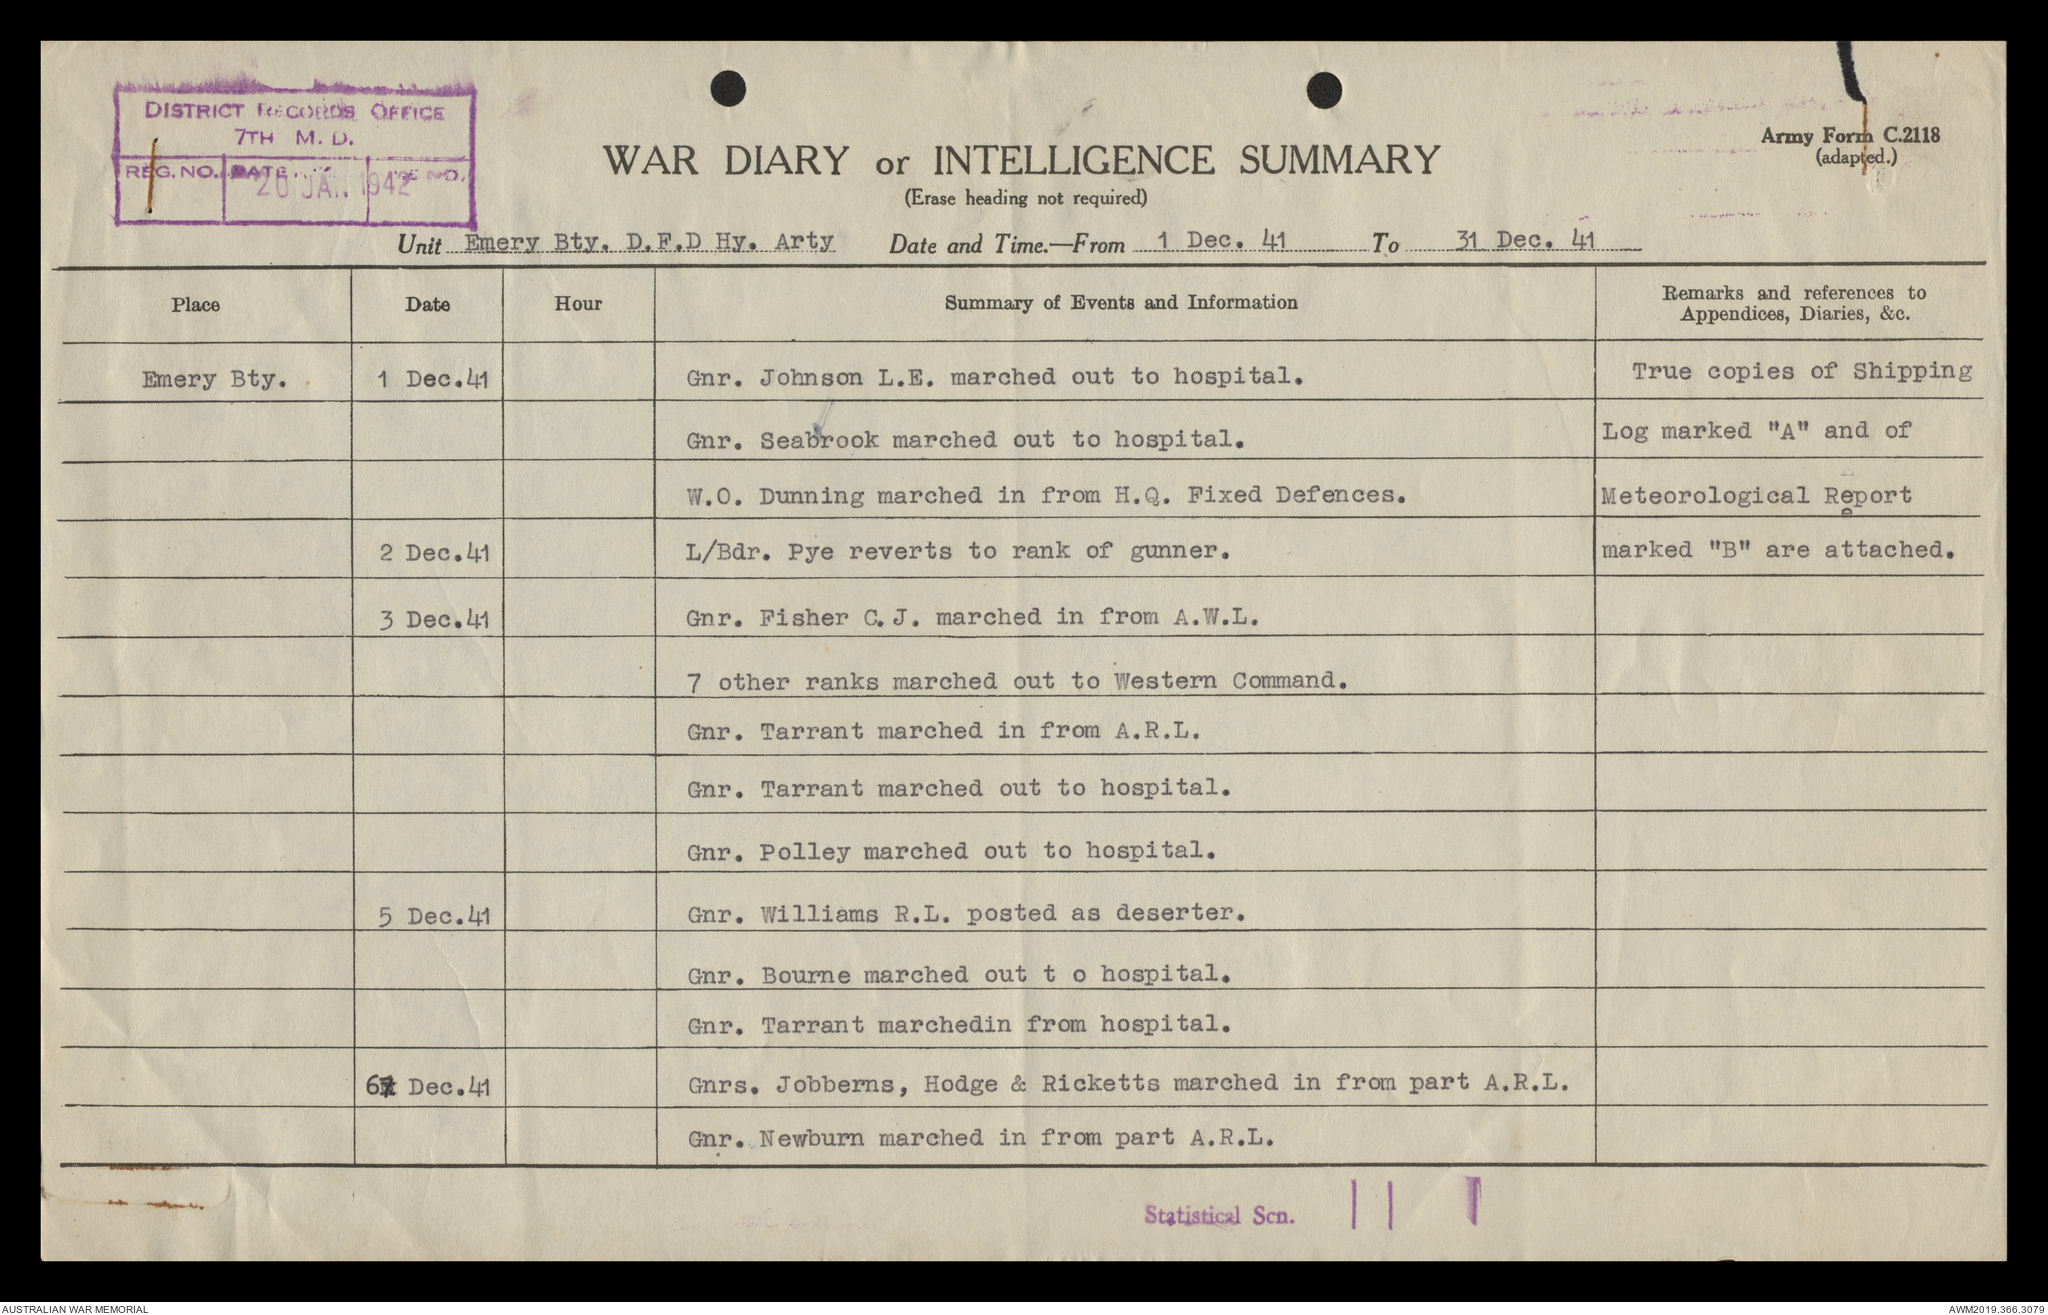 DISTRICT RECORDS OFFICE
7TH M. D.
REG. NO. DATE NO.
20 JAN 1942
WAR DIARY or INTELLIGENCE SUMMARY
(Erase heading not required)
Army Form C.2118
(adapted.)
Unit Emery Bty. D.F.D Hy. Arty Date and Time.—From 1 Dec. 41 To 31 Dec. 41
Place Date Hour Summary of Events and Information Remarks and references to Appendices, Diaries, &c.
Emery Bty. 1 Dec.41 Gnr. Johnson L.E. marched out to hospital. True copies of Shipping
Gnr. Seabrook marched out to hospital. Log marked "A" and of
W.O. Dunning marched in from H.Q. Fixed Defences. Meteorological Report
2 Dec.41 L/Bdr. Pye reverts to rank of gunner. marked "B" are attached.
3 Dec.41 Gnr. Fisher C.J. marched in from A.W.L.
7 other ranks marched out to Western Command.
Gnr. Tarrant marched in from A.R.L.
Gnr. Tarrant marched out to hospital.
Gnr. Polley marched out to hospital.
5 Dec.41 Gnr. Williams R.L. posted as deserter.
Gnr. Bourne marched out t o hospital.
Gnr. Tarrant marchedin from hospital.
6 Dec.41 Gnrs. Jobberns, Hodge & Ricketts marched in from part A.R.L.
Gnr. Newburn marched in from part A.R.L.
Statistical Scn.
AUSTRALIAN WAR MEMORIAL
AWM2019.366.3079